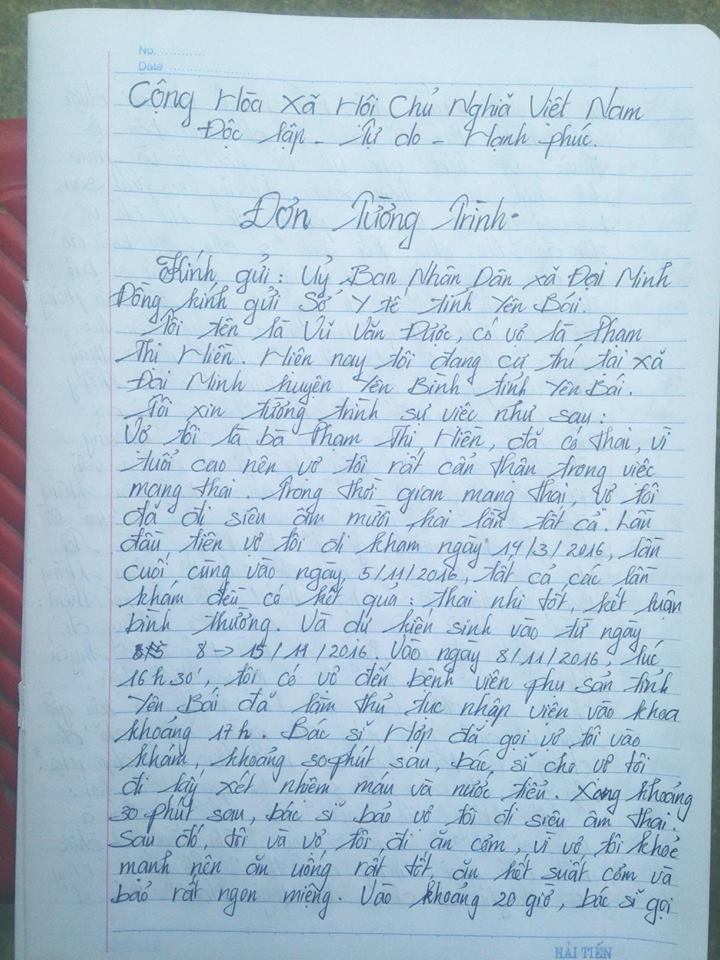 No. ............
Date ........................
Cộng Hòa Xã Hội Chủ Nghĩa Việt Nam
Độc lập - Tự do - Hạnh phúc.
Đơn Tường Trình.
Kính gửi : Uỷ Ban Nhân Dân xã Đại Minh
Đồng kính gửi Sở Y tế tỉnh Yên Bái.
Tôi tên là Vũ Văn Được, có vợ là Phạm
Thị Hiền. Hiện nay tôi đang cư trú tại xã
Đại Minh huyện Yên Bình tỉnh Yên Bái.
Tôi xin tường trình sự việc như sau :
Vợ tôi là bà Phạm Thị Hiền, đã có thai, vì
tuổi cao nên vợ tôi rất cẩn thân trong việc
mang thai. Trong thời gian mang thai, vợ tôi
đã đi siêu âm mười hai lần tất cả. Lần
đầu tiên vợ tôi đi kham ngày 14/3/2016, lần
cuối cùng vào ngày 5/11/2016, tất cả các lần
khám đều có kết quả : thai nhi tốt, kết luận
bình thường. Và dự kiến sinh vào từ ngày
8 -> 15/11/2016. Vào ngay 8/11/2016, lúc
16h30', tôi có vợ đến bệnh viện phụ sản tỉnh
Yên Bái đã làm thủ tục nhập viện vào khoa
khoảng 17h. Bác sĩ Hợp đã gọi vợ tôi vào
khám, khoảng 30 phút sau, bác sĩ cho vợ tôi
đi lấy xét nhiệm máu và nước tiểu. Xong khoảng
30 phút sau, bác sĩ bảo vợ tôi đi siêu âm thai.
Sau đó, tôi và vợ tôi đi ăn cơm, vì vợ tôi khoẻ
mạnh nên ăn uống rất tốt, ăn hết suất cơm và
bảo rất ngon miệng. Vào khoảng 20 giờ, bác sĩ gọi
HẢI TIẾN